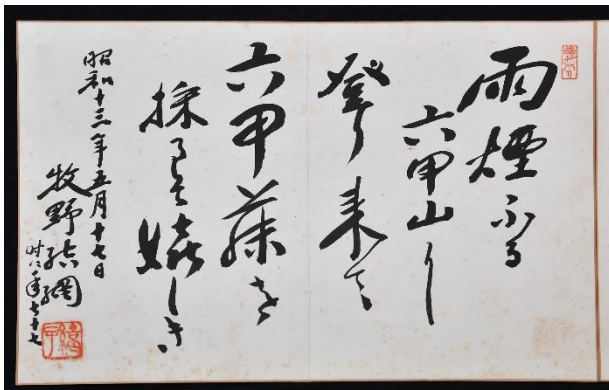 雨煙ふる
六甲山に
登り来て
六甲藤を
採るぞ嬉しき
昭和十三年五月十七日
牧野結網
時に年七十七